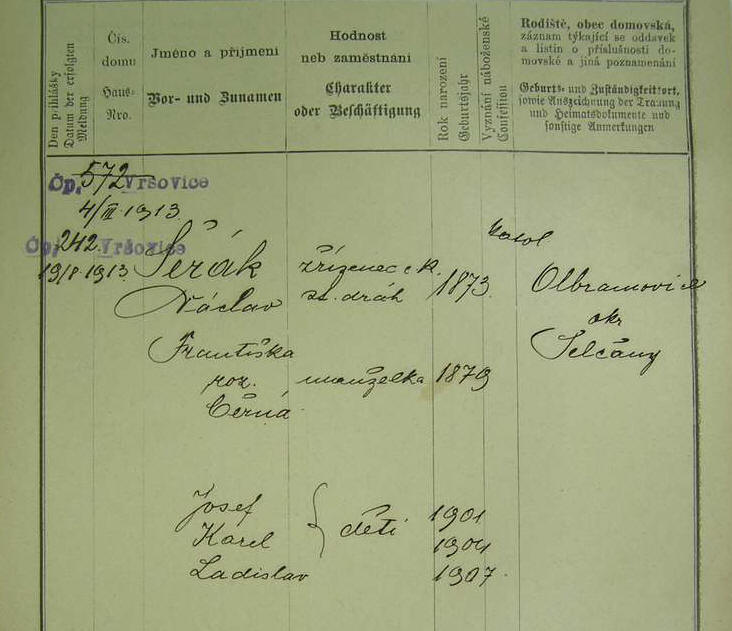 Den přihlášky
Datum der erfolgten
Meldung
Čís.
domu
Haus-
Nro.
Jméno a příjmení
Vor- und Zunamen
Hodnost
neb zaměstnání
Charakter
oder Beschäftigung
Rok narození
Geburtsjahr
Vyznání náboženské
Confession
Rodiště, obec domovská,
záznam týkající se oddavek
a listin o příslušnosti do-
movské a jiná poznamenání
Geburts- und Zuständigkeitsort,
sowie Aufzeichnung der Trauung
und Heimatsdokumente und
sonstige Anmerkungen
Čp. 572 Vršovice
4/III 1913
Čp. 242 Vršovice
1913 Šerák zřízenec c.k. 1873 Olbramovice
Václav st. drah okr
Františka Selčany
roz. manželka 1879
Černá
Josef 1901
Karel děti 1904
Ladislav 1907